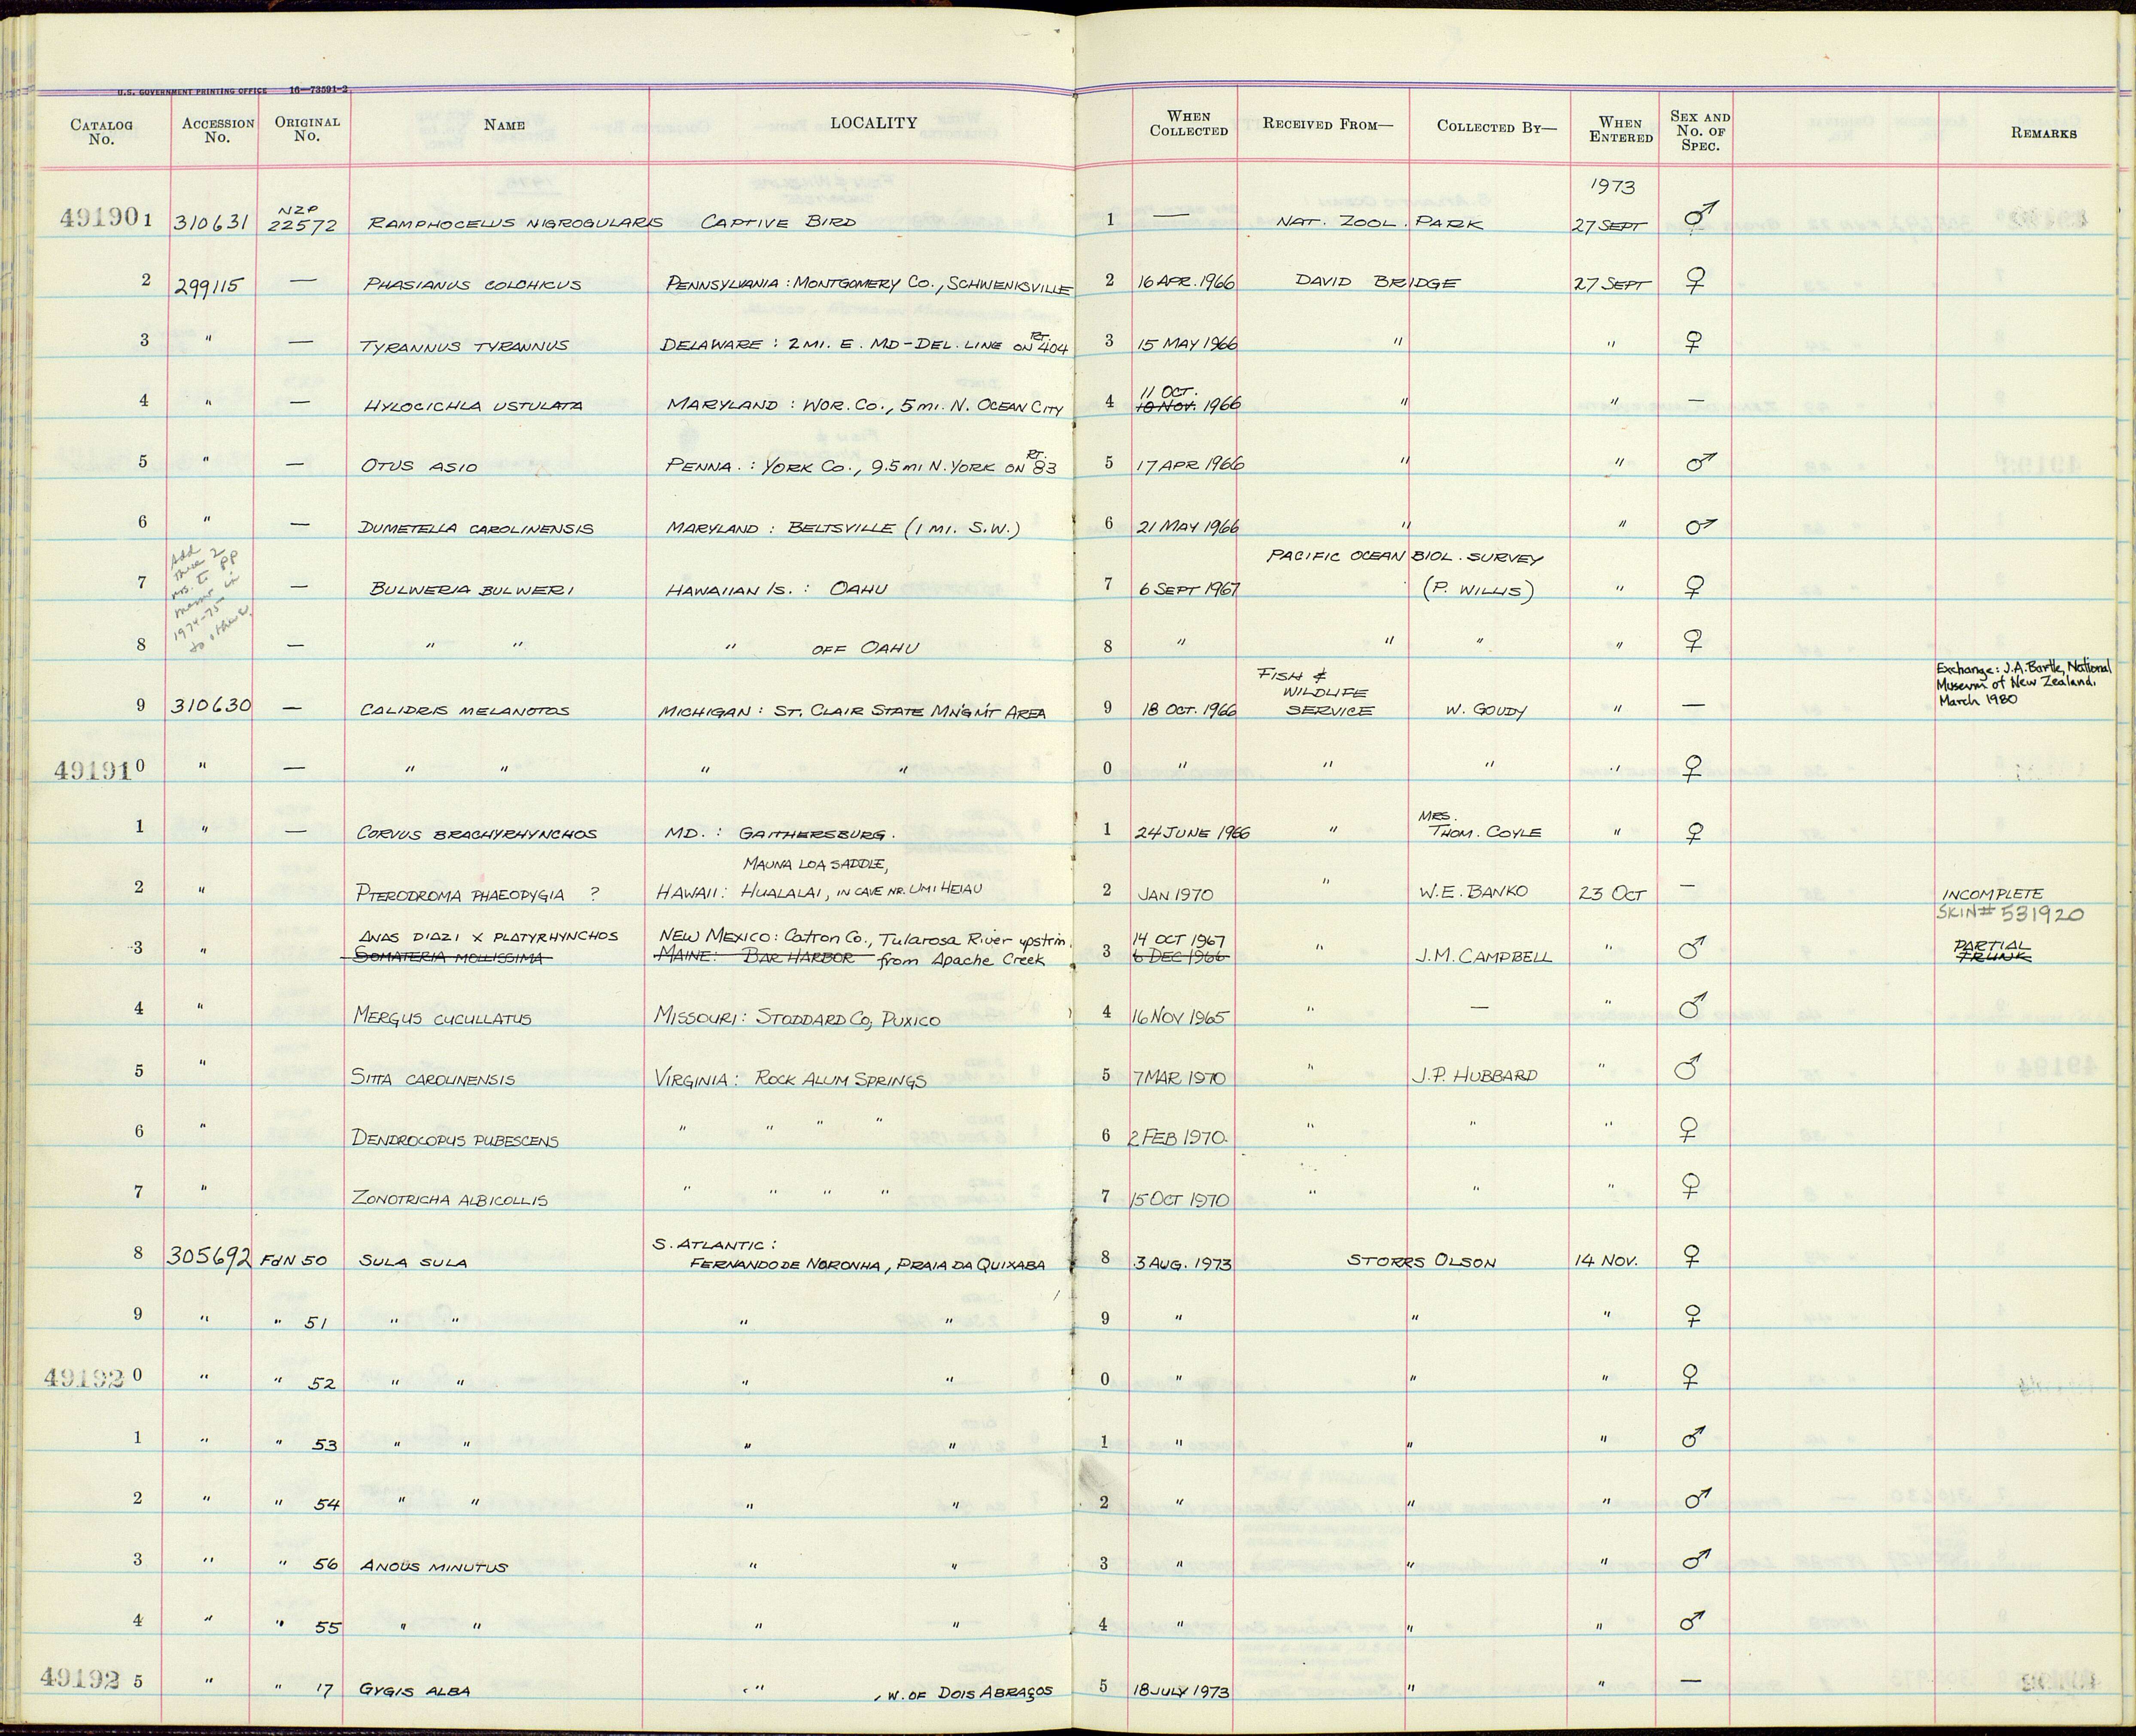 U.S. GOVERNMENT PRINTING OFFICE 16—73591-2
CATALOG No. ACCESSION No. ORIGINAL No. NAME LOCALITY WHEN COLLECTED RECEIVED FROM— COLLECTED BY— WHEN ENTERED SEX AND No. OF SPEC. REMARKS
1973
491901 310631 NZP 22572 RAMPHOCELUS NIGROGULARIS CAPTIVE BIRD 1 — NAT. ZOOL. PARK 27 SEPT ♂
2 299115 — PHASIANUS COLCHICUS PENNSYLVANIA : MONTGOMERY CO., SCHWENKSVILLE 2 16 APR. 1966 DAVID BRIDGE 27 SEPT ♀
3 " — TYRANNUS TYRANNUS DELAWARE : 2 MI. E. MD-DEL. LINE ON RT. 404 3 15 MAY 1966 " " ♀
4 " — HYLOCICHLA USTULATA MARYLAND : WOR. CO., 5 MI. N. OCEAN CITY 4 11 OCT. 10 NOV. 1966 " " —
5 " — OTUS ASIO PENNA. : YORK CO., 9.5 MI N. YORK ON RT. 83 5 17 APR 1966 " " ♂
6 " — DUMETELLA CAROLINENSIS MARYLAND : BELTSVILLE (1 MI. S.W.) 6 21 MAY 1966 " " ♂
Add these 2 nos. to PP memo in 1974-75 to other
PACIFIC OCEAN BIOL. SURVEY
7 — BULWERIA BULWERI HAWAIIAN IS. : OAHU 7 6 SEPT 1967 (P. WILLIS) " ♀
8 — " " " OFF OAHU 8 " " " " ♀
9 310630 — CALIDRIS MELANOTOS MICHIGAN : ST. CLAIR STATE MNGMT AREA 9 18 OCT. 1966 FISH & WILDLIFE SERVICE W. GOUDY " — Exchange: J.A. Bartle, National Museum of New Zealand. March 1980
491910 " — " " " " 0 " " " " ♀
1 " — CORVUS BRACHYRHYNCHOS MD. : GAITHERSBURG. 1 24 JUNE 1966 " MRS. THOM. COYLE " ♀
MAUNA LOA SADDLE,
2 " PTERODROMA PHAEOPYGIA ? HAWAII: HUALALAI, IN CAVE NR. UMI HEIAU 2 JAN 1970 " W.E. BANKO 23 OCT — INCOMPLETE
SKIN# 531920
ANAS DIAZI X PLATYRHYNCHOS NEW MEXICO: Catron Co., Tularosa River upstrm. 14 OCT 1967 PARTIAL
3 " SOMATERIA MOLLISSIMA MAINE: BAR HARBOR from Apache Creek 3 6 DEC 1966 " J.M. CAMPBELL " ♂ TRUNK
4 " MERGUS CUCULLATUS MISSOURI: STODDARD CO, PUXICO 4 16 NOV 1965 " — " ♂
5 " SITTA CAROLINENSIS VIRGINIA: ROCK ALUM SPRINGS 5 7 MAR 1970 " J.P. HUBBARD " ♂
6 " DENDROCOPUS PUBESCENS " " " " 6 2 FEB 1970. " " " ♀
7 " ZONOTRICHA ALBICOLLIS " " " " 7 15 OCT 1970 " " " ♀
S. ATLANTIC :
8 305692 FdN 50 SULA SULA FERNANDO DE NORONHA, PRAIA DA QUIXABA 8 3 AUG. 1973 STORRS OLSON 14 NOV. ♀
9 " " 51 " " " " 9 " " " ♀
491920 " " 52 " " " " 0 " " " ♀
1 " " 53 " " " " 1 " " " ♂
2 " " 54 " " " " 2 " " " ♂
3 " " 56 ANOUS MINUTUS " " 3 " " " ♂
4 " " 55 " " " " 4 " " " ♂
491925 " " 17 GYGIS ALBA " , W. OF DOIS ABRAÇOS 5 18 JULY 1973 " " —